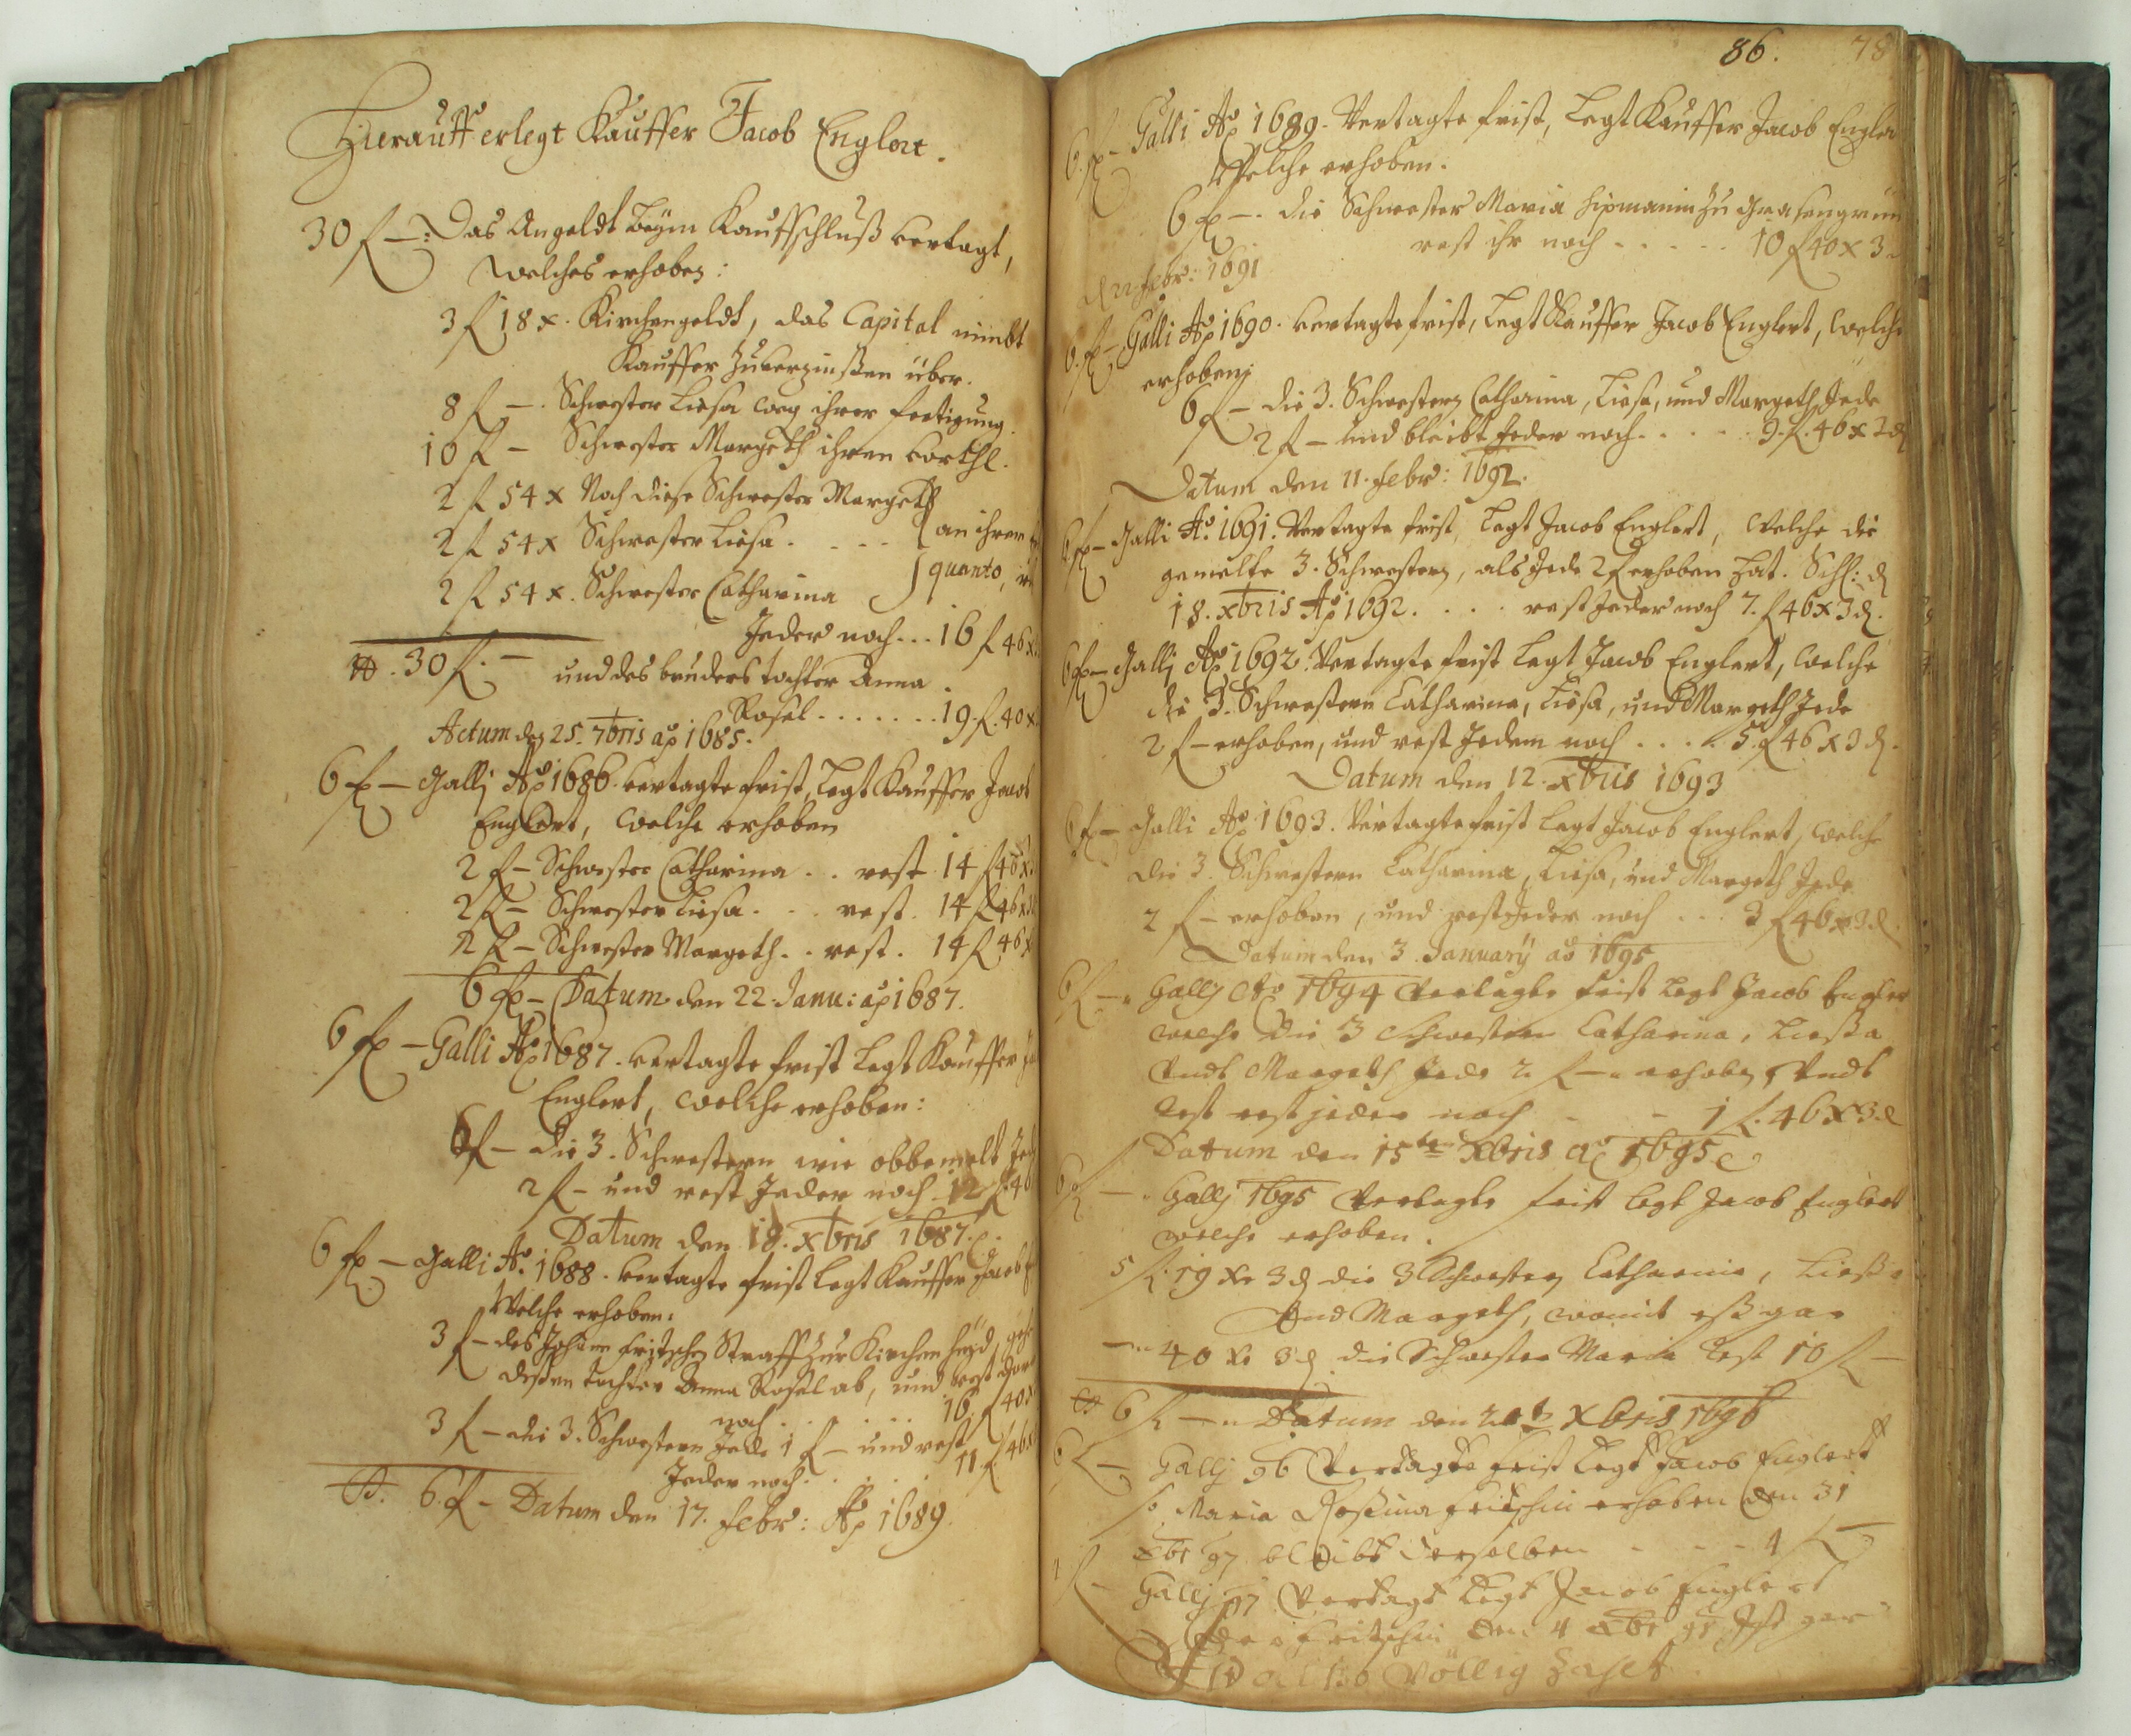 Hierauff erlegt Kauffer Jacob Englert.
30 f –: Das Angeldt beÿm Kauffschluß vertagt,
welches erhoben:
3 f 18 x. Kirchengeldt, das Capital nimbt
Kauffer zuverzinßen über.
8 f –. Schwester Liesa weg ihrer fertigung.
10 f – Schwester Margeth ihren vorthl.
2 f 54 x Noch diese Schwester Margeth
2 f 54 x Schwester Liesa . . . . an ihrem
2 f 54 x. Schwester Catharina quanto,
Jeder noch . . . 16 f 46 x
30 f. – und des bruders tochter Anna
Rosel . . . . . . . 19. f. 40 x
Actum den 25. 7bris ao 1685.
6 f – Gallj Ao 1686. vertagte frist, Legt Kauffer Jacob
Englert, welche erhoben
2 f – Schwester Catharina . . rest 14 f 46 x.
2 f – Schwester Liesa . . . rest. 14 f 46 x 3
2 f – Schwester Margeth . . rest. 14 f 46 x
6 f – Datum den 22. Janu: ao 1687.
6 f – Galli Ao 1687. vertagte frist Legt Kauffer
Englert, welche erhoben:
6 f – die 3. Schwestern wie obbemelt Jede
2 f – und rest Jeder noch 12 f. 4
Datum den 18. Xbris 1687.
6 f – Galli Ao. 1688. vertagte frist Legt Kauffer Jacob
Welche erhoben:
3 f – des Johann Fritschen Straff zur Kirchen
dessen tochter Anna Rosel ab, und rest
noch . . . . . 16. f 40 x
3 f – die 3. Schwestern Jede 1 f – und rest
Jeder noch . . . . . 11. f. 46 x
6. f – Datum den 17. Febr: Ao 1689.
86. 78
6. f – Galli Ao 1689. Vertagte frist, Legt Kauffer Jacob Engler
Welche erhoben.
6 f –. die Schwester Maria zu Grasengrun
rest ihr noch . . . . . 10 f 40 x 3
22 Febr: 1691
6. f – Galli Ao 1690. vertagte frist, Legt Kauffer Jacob Englert, welche
erhoben:
6 f – die 3. Schwestern Catharina, Liesa, und Margeth Jede
2 f – und bleibt Jeder noch . . . . . 9. f. 46 x 3 d
Datum den 11. Febr: 1692.
6 f – Galli Ao. 1691. Vertagte frist, Legt Jacob Englert, Welche die
gemelte 3. Schwestern, als Jede 2 f erhoben hat. d
18. Xbris Ao 1692 . . . . rest Jeder noch 7. f 46 x 3 d.
6 f – Gallj Ao 1692. Vertagte frist Legt Jacob Englert, welche
die 3. Schwestern Catharina, Liesa, und Margeth Jede
2 f – erhoben, und rest Jedem noch . . . . 5. f 46 x 3 d.
Datum den 12. Xbris 1693
6 f – Galli Ao 1693. Vertagte frist Legt Jacob Englert, welche
die 3. Schwestern Catharina, Liesa, und Margeth Jede
2 f – erhoben, und rest Jeder noch . . . 3 f 46 x 3 d.
Datum den 3. Januarÿ ao 1695
6 f – Gallj Ao 1694 Vertagte frist Legt Jacob Engler
welche die 3 Schwestern Catharina, Liesa
Undt Margeth Jede 2 f – erhoben, Undt
rest jeder noch - - 1 f. 46 x 3 d
Datum den 15ten Xbris ao 1695
6 f – Gallj 1695 Vertagte frist legt Jacob Englert
welche erhoben.
5 f. 19 Xr 3 d die 3 Schwestern Catharina, Liesa
Und Margeth, womit eß gar
– 40 Xr 3 d die Schwester Maria rest 10 f –
6 f – Datum den Xbris 1696
6 f – Gallj 96 Vertagte frist Legt Jacob Englert
so Maria Rosina fritschin erhoben den 31
Xbr 97 bleibt derselben - - - 4 f
Gallj 97 Vertagt Legt Jacob Englert
fritschin den 4 Xbr
also völlig zahlt